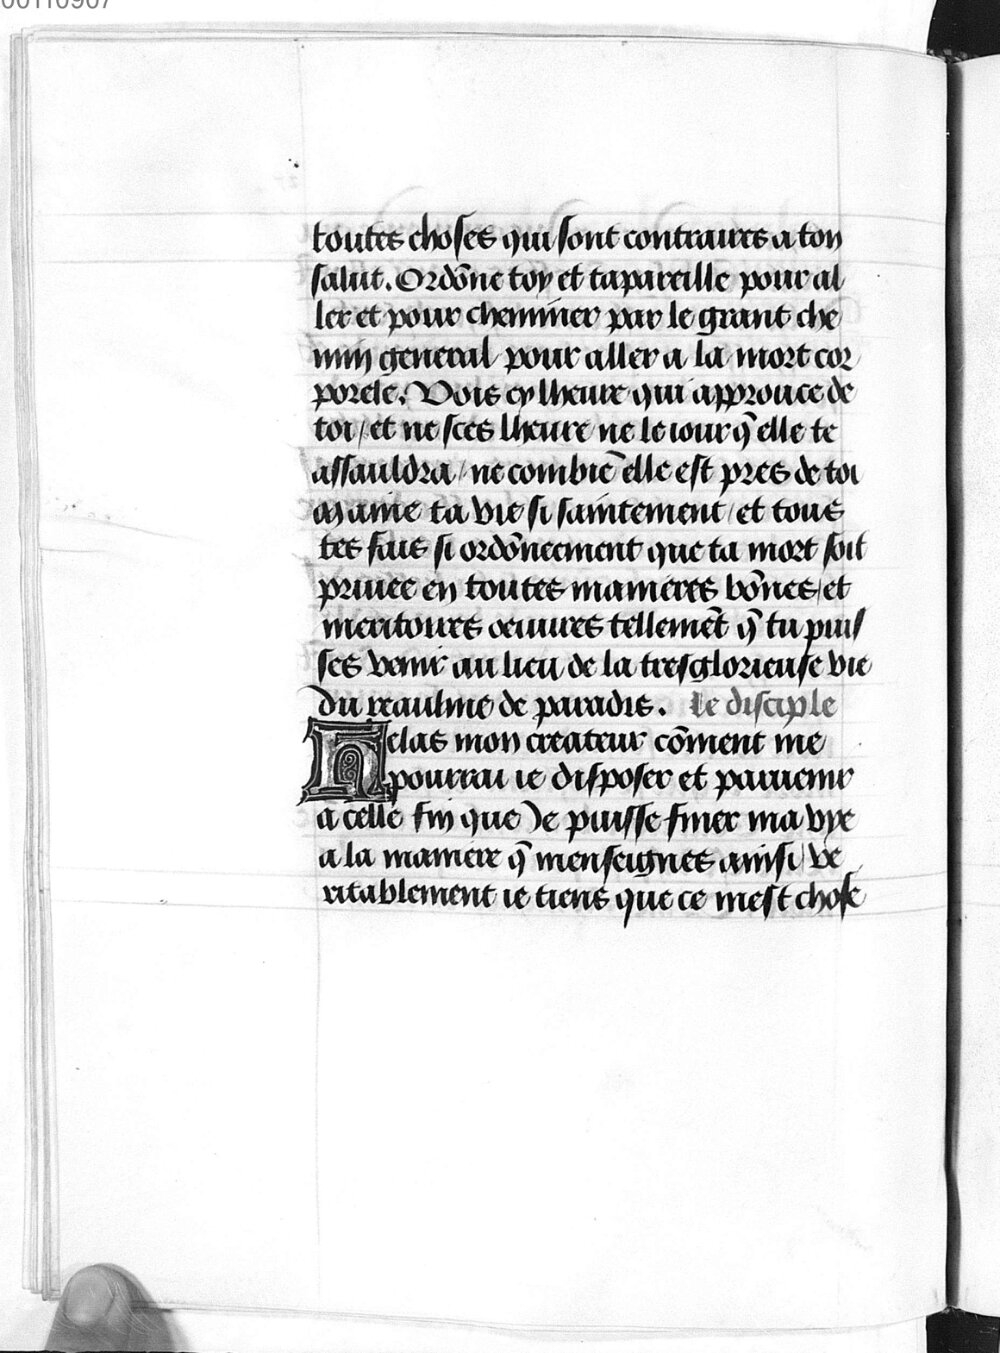 00110907
toutes choses qui sont contraires a ton
salut. Ordōne toy et tapareille pour al
ler et pour cheminer par le grant che
min general pour aller a la mort cor
porele. Vois cy lheure qui approuce de
toi / et ne sces lheure ne le iour q̄ elle te
assauldra / ne combiē elle est pres de toi
Maine ta vie si saintement / et tous
tes fais si ordōneement que ta mort soit
priuee en toutes manieres bōnes / et
meritoires oeuures tellemēt q̄ tu puis
ses venir au lieu de la tresglorieuse vie
du reaulme de paradis. le disciple
Helas mon createur cōment me
pourrai ie disposer et paruenir
a celle fin que Je puisse finer ma vye
a la maniere q̄ menseignes ainsi / ve
ritablement ie tiens que ce mest chose